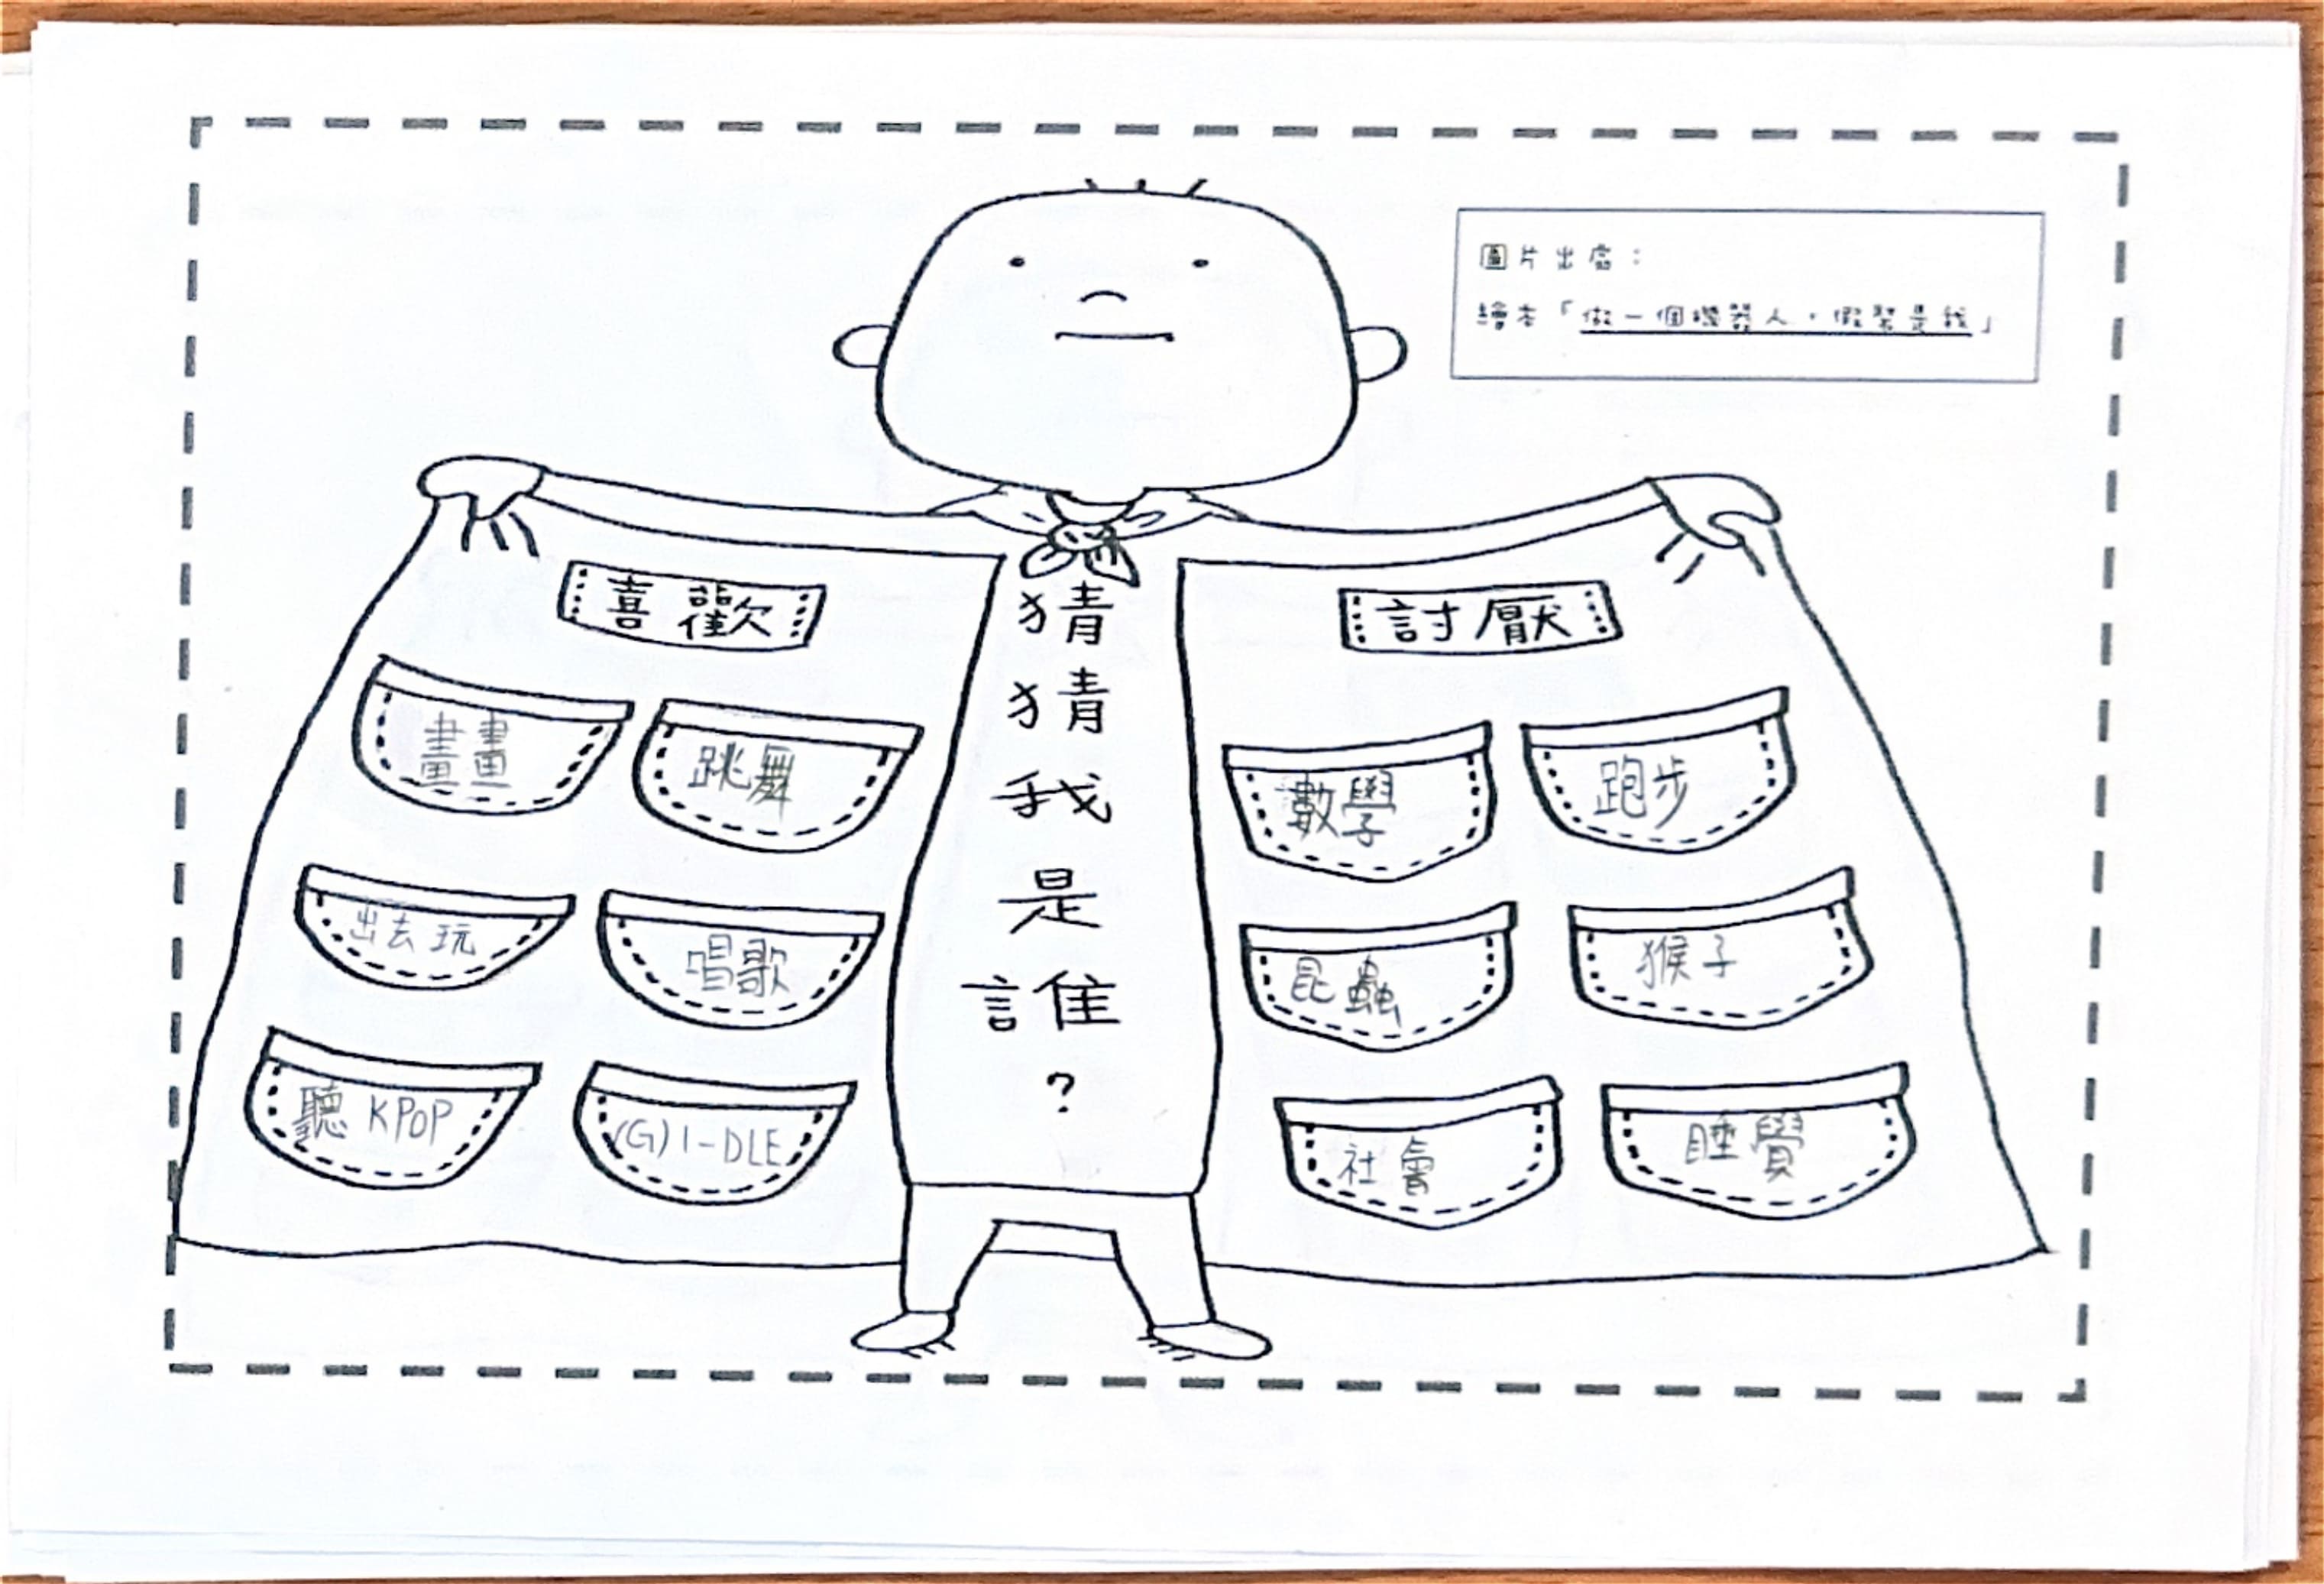 圖片出處：
繪本「做一個機器人，假裝是我」
喜歡
畫畫
跳舞
出去玩
唱歌
聽 KPOP
(G)I-DLE
猜
猜
我
是
誰
？
討厭
數學
跑步
昆蟲
猴子
社會
睡覺